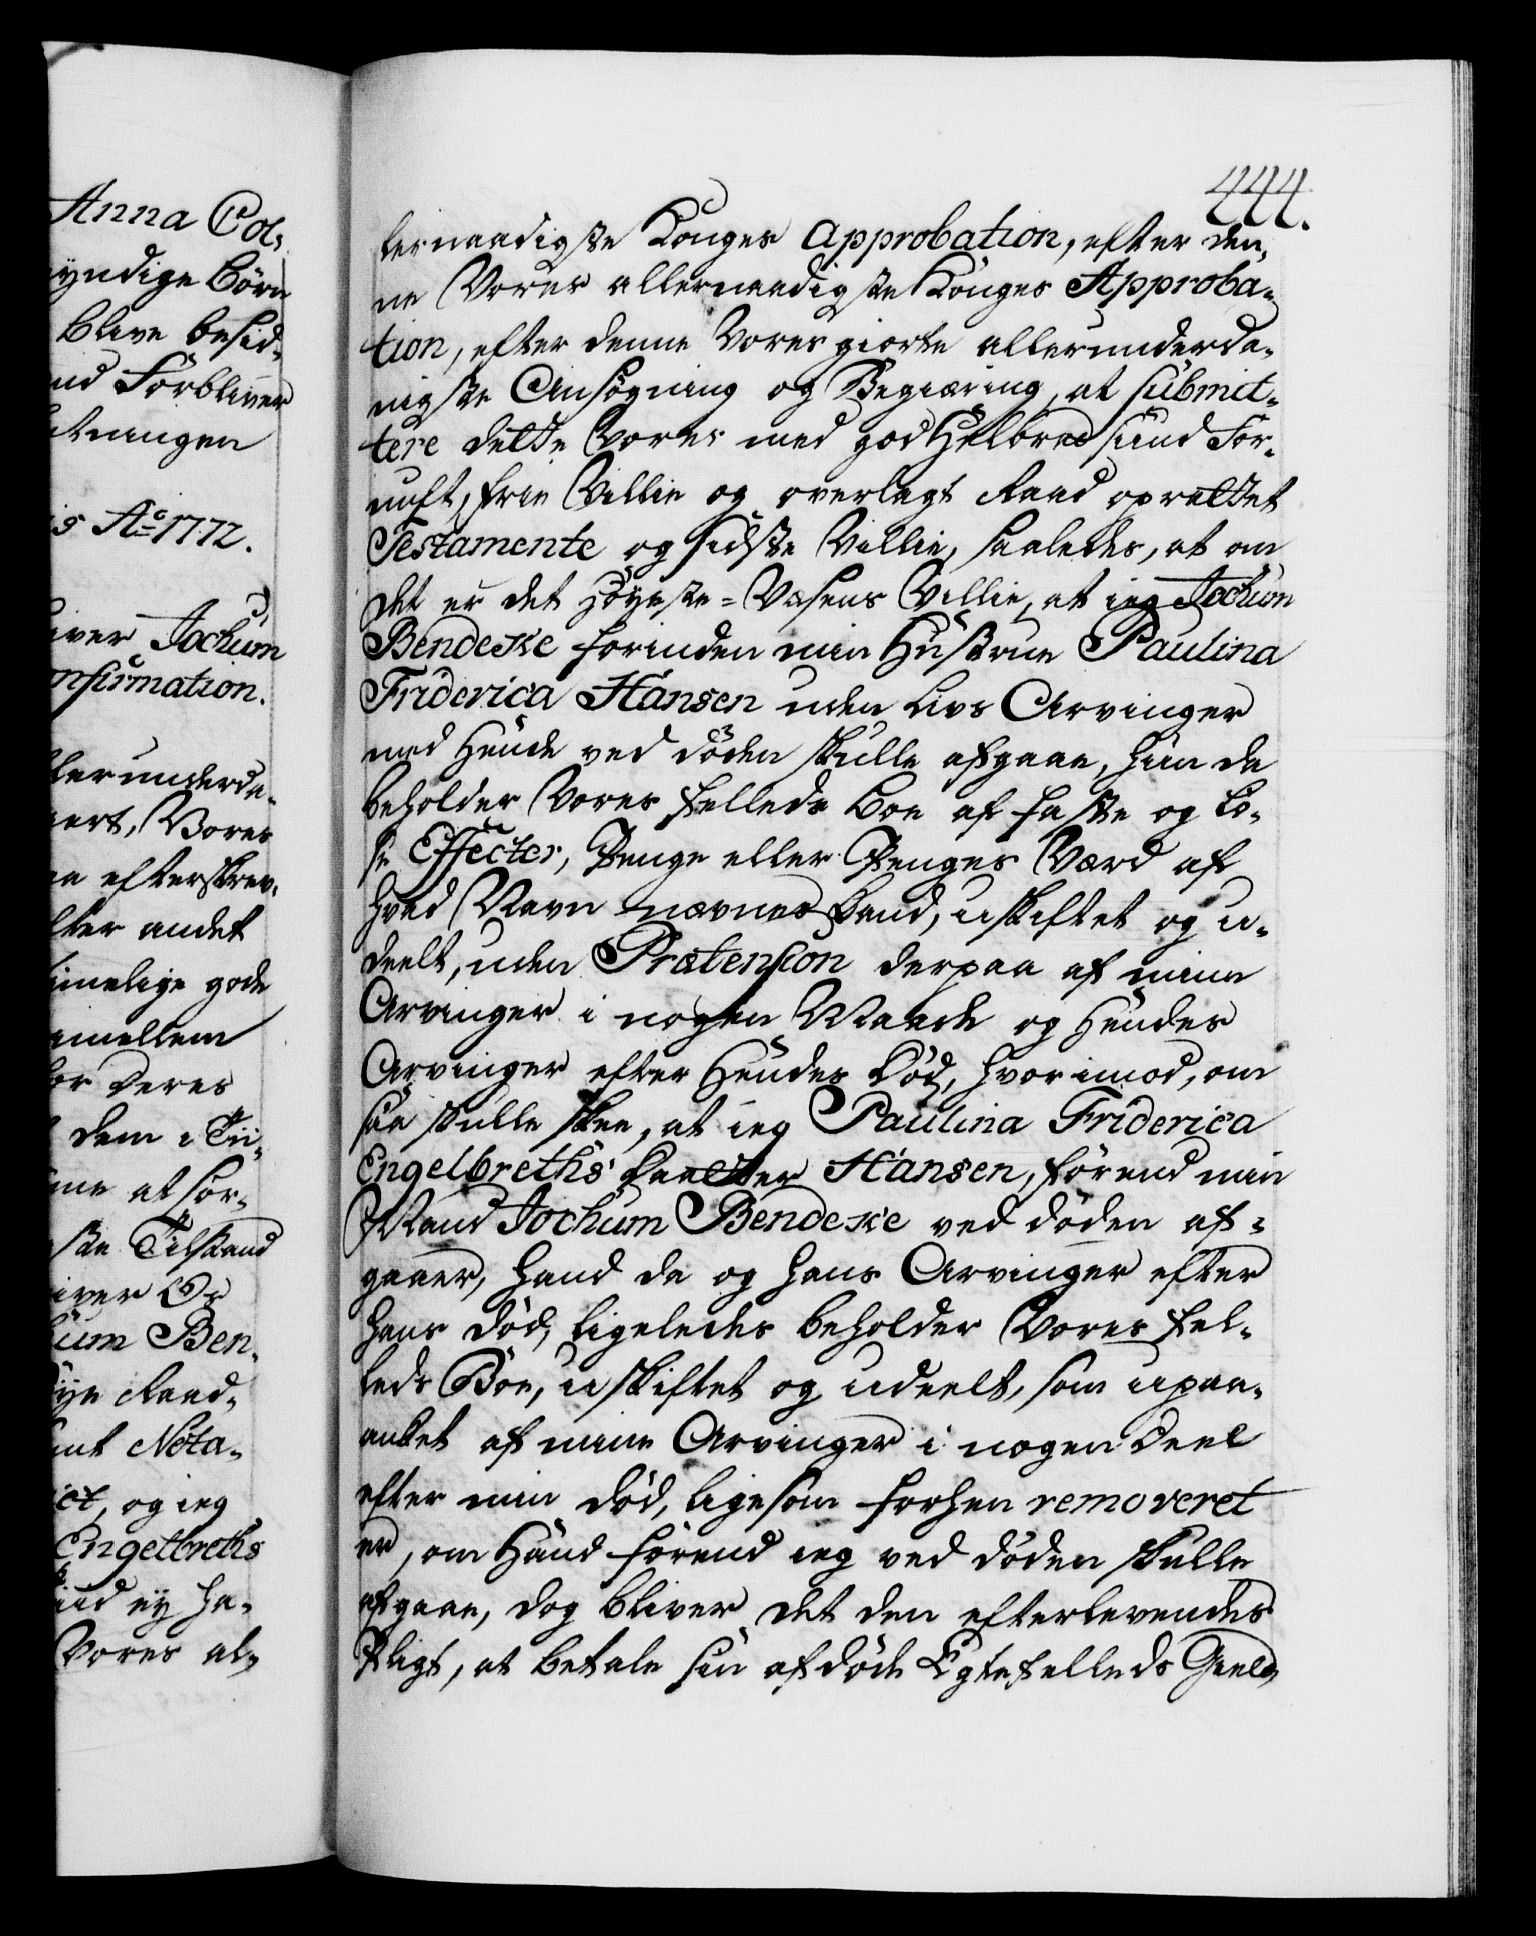 Anna Col-
yndige Børn
blive besid-
nd Forbliver
atningen
is Aº 1772.
iver Jochum
onfirmation.
ller underda-
ert, Vores
aa efterskrev-
fter andet
imelige gode
imellem
for deres
dem i Tii-
ine at for-
ske Tilstand
iver Os
hum Ben-
øye Raad-
int Nota-
ict, og ieg
Engelbreths
uud ey ha-
Vores al-
444.
lernaadigste Konges Approbation, efter den-
ne Vores allernaadigste Konges Approba-
tion, efter denne Vores giorte allerunderda-
nigste Ansøgning og Begiæring, at submit-
tere dette Vores med god Helbred sund For-
nuft, frie Villie og overlagt Raad oprettet
Testamente og sidste Villie, saaledes, at om
det er det Høyeste-Væsens Villie, at ieg Jochum
Bendeske forinden min Hustrue Paulina
Friderica Hansen uden Livs Arvinger
med Hende ved døden skulle afgaae, hun da
beholder Vores fælleds Boe af faste og Lø-
se Effecter, Penge eller Penges Værd af
hvad Navn nævnes kand, uskiftet og u-
deelt, uden Prætension derpaa af mine
Arvinger i nogen Maade og Hendes
Arvinger efter Hendes Død, hvorimod, om
saa skulle skee, at ieg Paulina Friderica
Engelbreths Daatter Hansen, førend min
Mand Jochum Bendeske ved døden af-
gaaer, hand da og hans Arvinger efter
hans død, ligeledes beholder Vores fæl-
leds Boe, uskiftet og udeelt, som upaa-
anket af mine Arvinger i nogen Deel
efter min død, ligesom forhen removeret
er, om Hand førend ieg ved døden skulle
afgaae, dog bliver det den efterlevendes
Pligt, at betale sin afdøde Egtefælleds Gield,